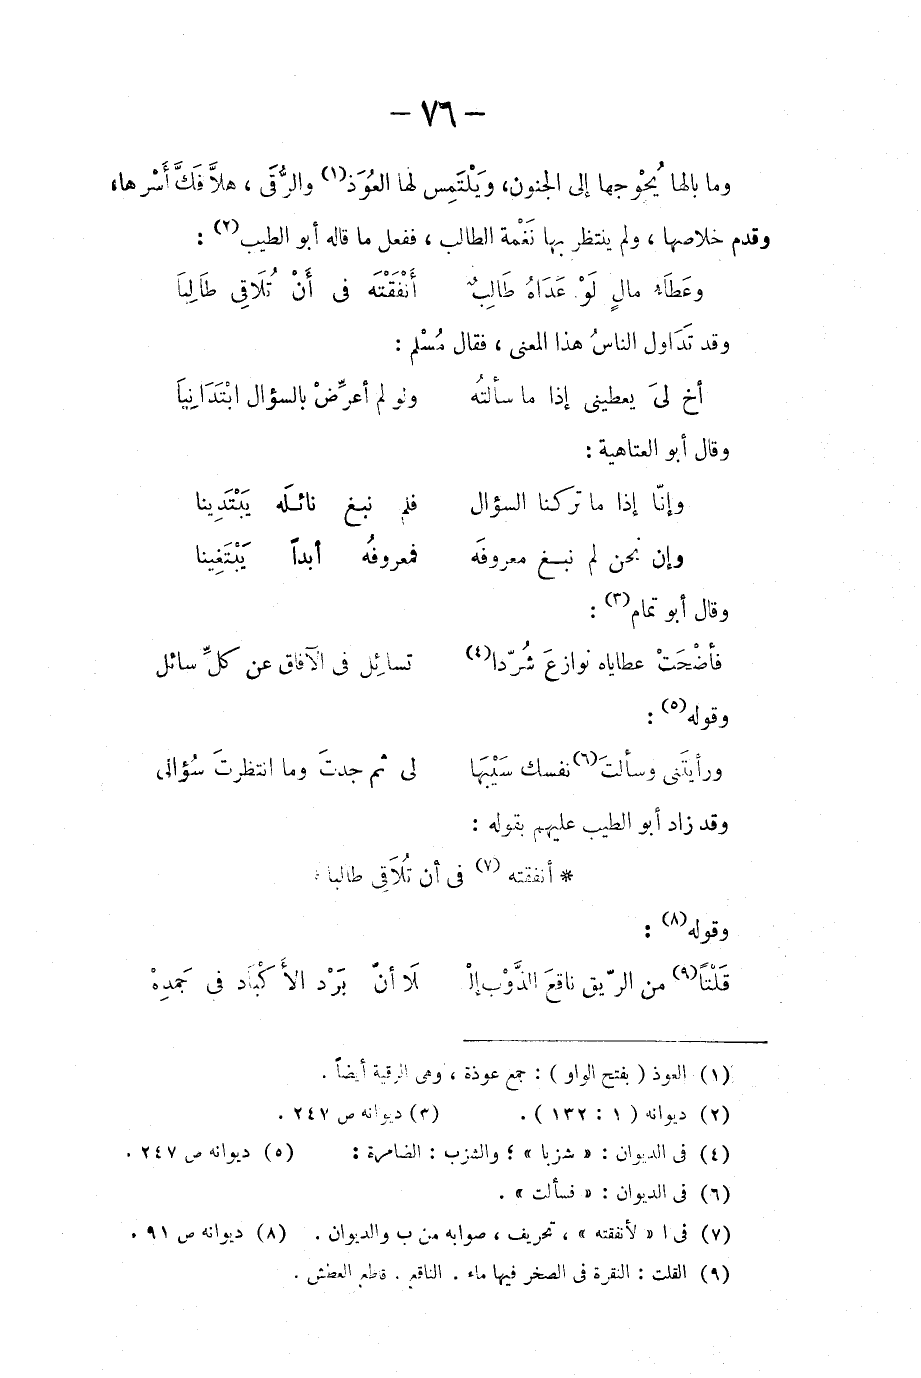 – ٧٦ –
وما بالها يُحْوجها إلى الجنون، ويَلْتَمِس لها العُوَذ(١) والرُّقَى ، هلاَّ فَكَّ أَسْرها،
وقدم خلاصها ، ولم ينتظر بها نَغْمة الطالب ، ففعل ما قاله أبو الطيب(٢) :
وعَطَاءِ مالٍ لَوْ عَدَاهُ طَالِبٌ أَنْفَقْتَه فى أَنْ تُلَاقِى طَالِبَا
وقد تَدَاول الناسُ هذا المعنى ، فقال مُسْلم :
أخ لىَ يعطينى إذا ما سألتهُ ولو لم أعرِّضْ بالسؤال ابْتَدَانِيَا
وقال أبو العتاهية :
وإنّا إذا ما تركنا السؤال فلم نبغ نائله يَبْتَدِينا
وإن نحن لم نبغ معروفَه فمعروفُه أبداً يَبْتَغِينا
وقال أبو تمام(٣) :
فأضْحَتْ عطاياه نوازعَ شُرّدا(٤) تسائِل فى الآفاق عن كلِّ سائل
وقوله(٥) :
ورأيتَنى وسألتَ(٦) نفسك سَيْبَهَا لى ثم جدتَ وما انتظرتَ سُؤالى
وقد زاد أبو الطيب عليهم بقوله :
* أنفقته(٧) فى أن تُلَاقِى طالبا *
وقوله(٨) :
قَلْتاً(٩) من الرّيق ناقعَ الذَّوْب إلْ لَا أنّ بَرْد الأَكْبَاد فى جَمَدِهْ
(١) العوذ ( بفتح الواو ) : جمع عوذة ، وهى الرقية أيضاً .
(٢) ديوانه ( ١ : ١٣٢ ) . (٣) ديوانه ص ٢٤٧ .
(٤) فى الديوان : « شزبا » ؛ والشزب : الضامرة : (٥) ديوانه ص ٢٤٧ .
(٦) فى الديوان : « فسألت » .
(٧) فى ا « لأنفقته » ، تحريف ، صوابه من ب والديوان . (٨) ديوانه ص ٩١ .
(٩) القلت : النقرة فى الصخر فيها ماء . الناقع . قاطع العطش .